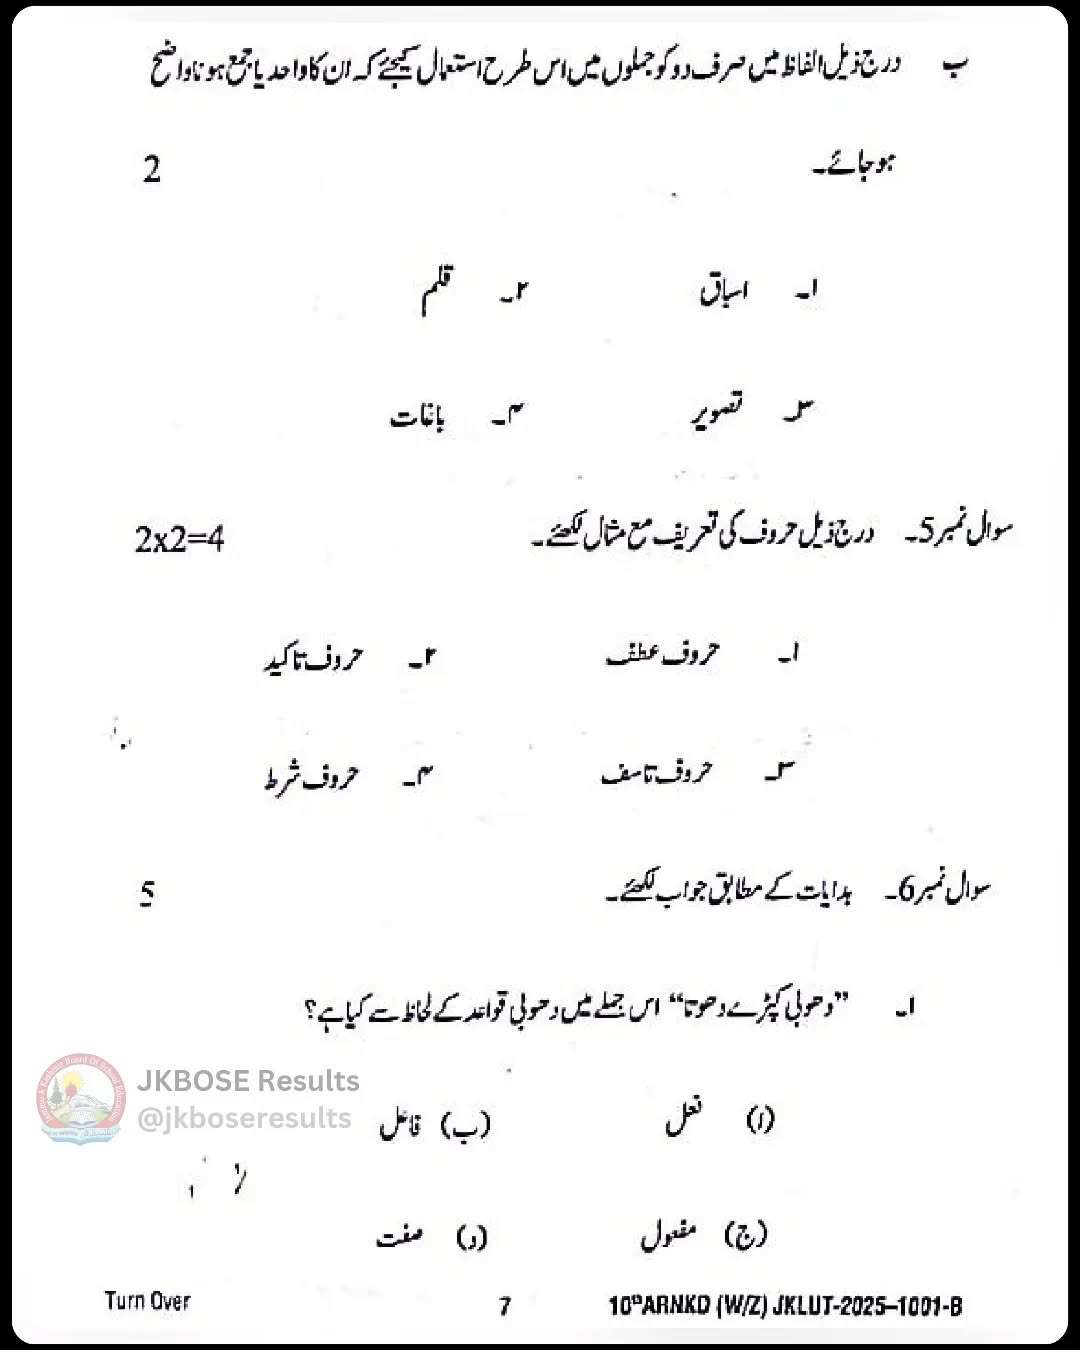 ب درج ذیل الفاظ میں صرف دو کو جملوں میں اس طرح استعمال کیجئے کہ ان کا واحد یا جمع ہونا واضح
ہو جائے۔ 2
۱۔ اسباق ۲۔ قلم
۳۔ تصویر ۴۔ باغات
سوال نمبر 5۔ درج ذیل حروف کی تعریف مع مثال لکھئے۔ 2x2=4
۱۔ حروف عطف ۲۔ حروف تاکید
۳۔ حروف تاسف ۴۔ حروف شرط
سوال نمبر 6۔ ہدایات کے مطابق جواب لکھئے۔ 5
۱۔ ”دھوبی کپڑے دھوتا“ اس جملے میں دھوبی قواعد کے لحاظ سے کیا ہے؟
JKBOSE Results
@jkboseresults
(ا) فعل (ب) فاعل
(ج) مفعول (د) صفت
Turn Over 7 10thARNKD (W/Z) JKLUT-2025-1001-B